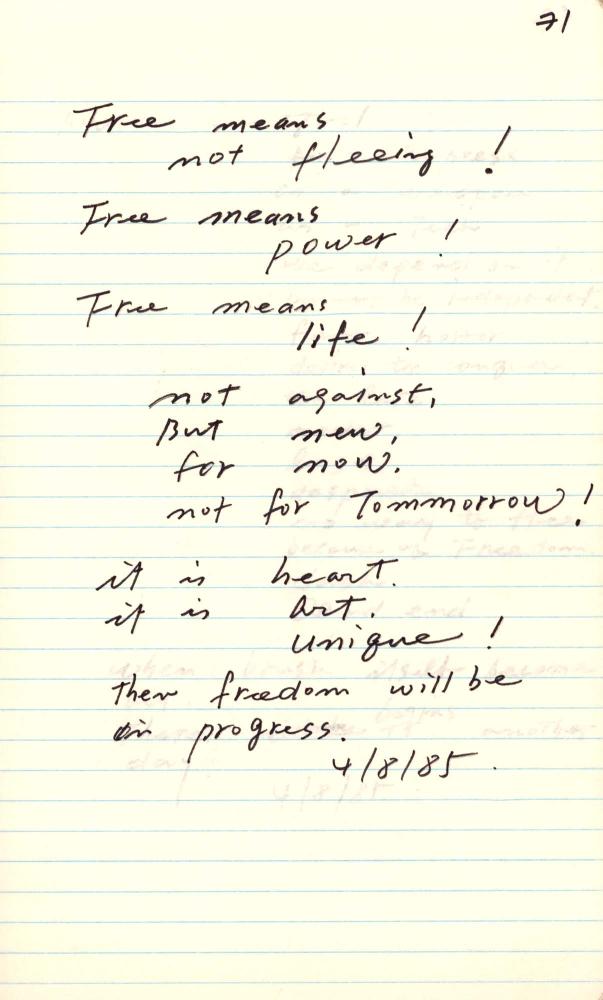 71
Free means
not fleeing!
Free means
power!
Free means
life!
not against,
But new,
for now.
not for Tommorrow!
it is heart.
it is Art.
unique!
then freedom will be
in progress.
4/8/85.